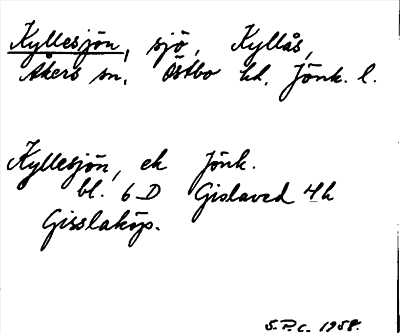 Kyllesjön, sjö, Kyllås,
Åkers sn, Östbo hd, Jönk. l.
Kyllesjön, ek Jönk.
bl. 6 D Gislaved 4h
Gisslaköp.
S.P.C. 1958.